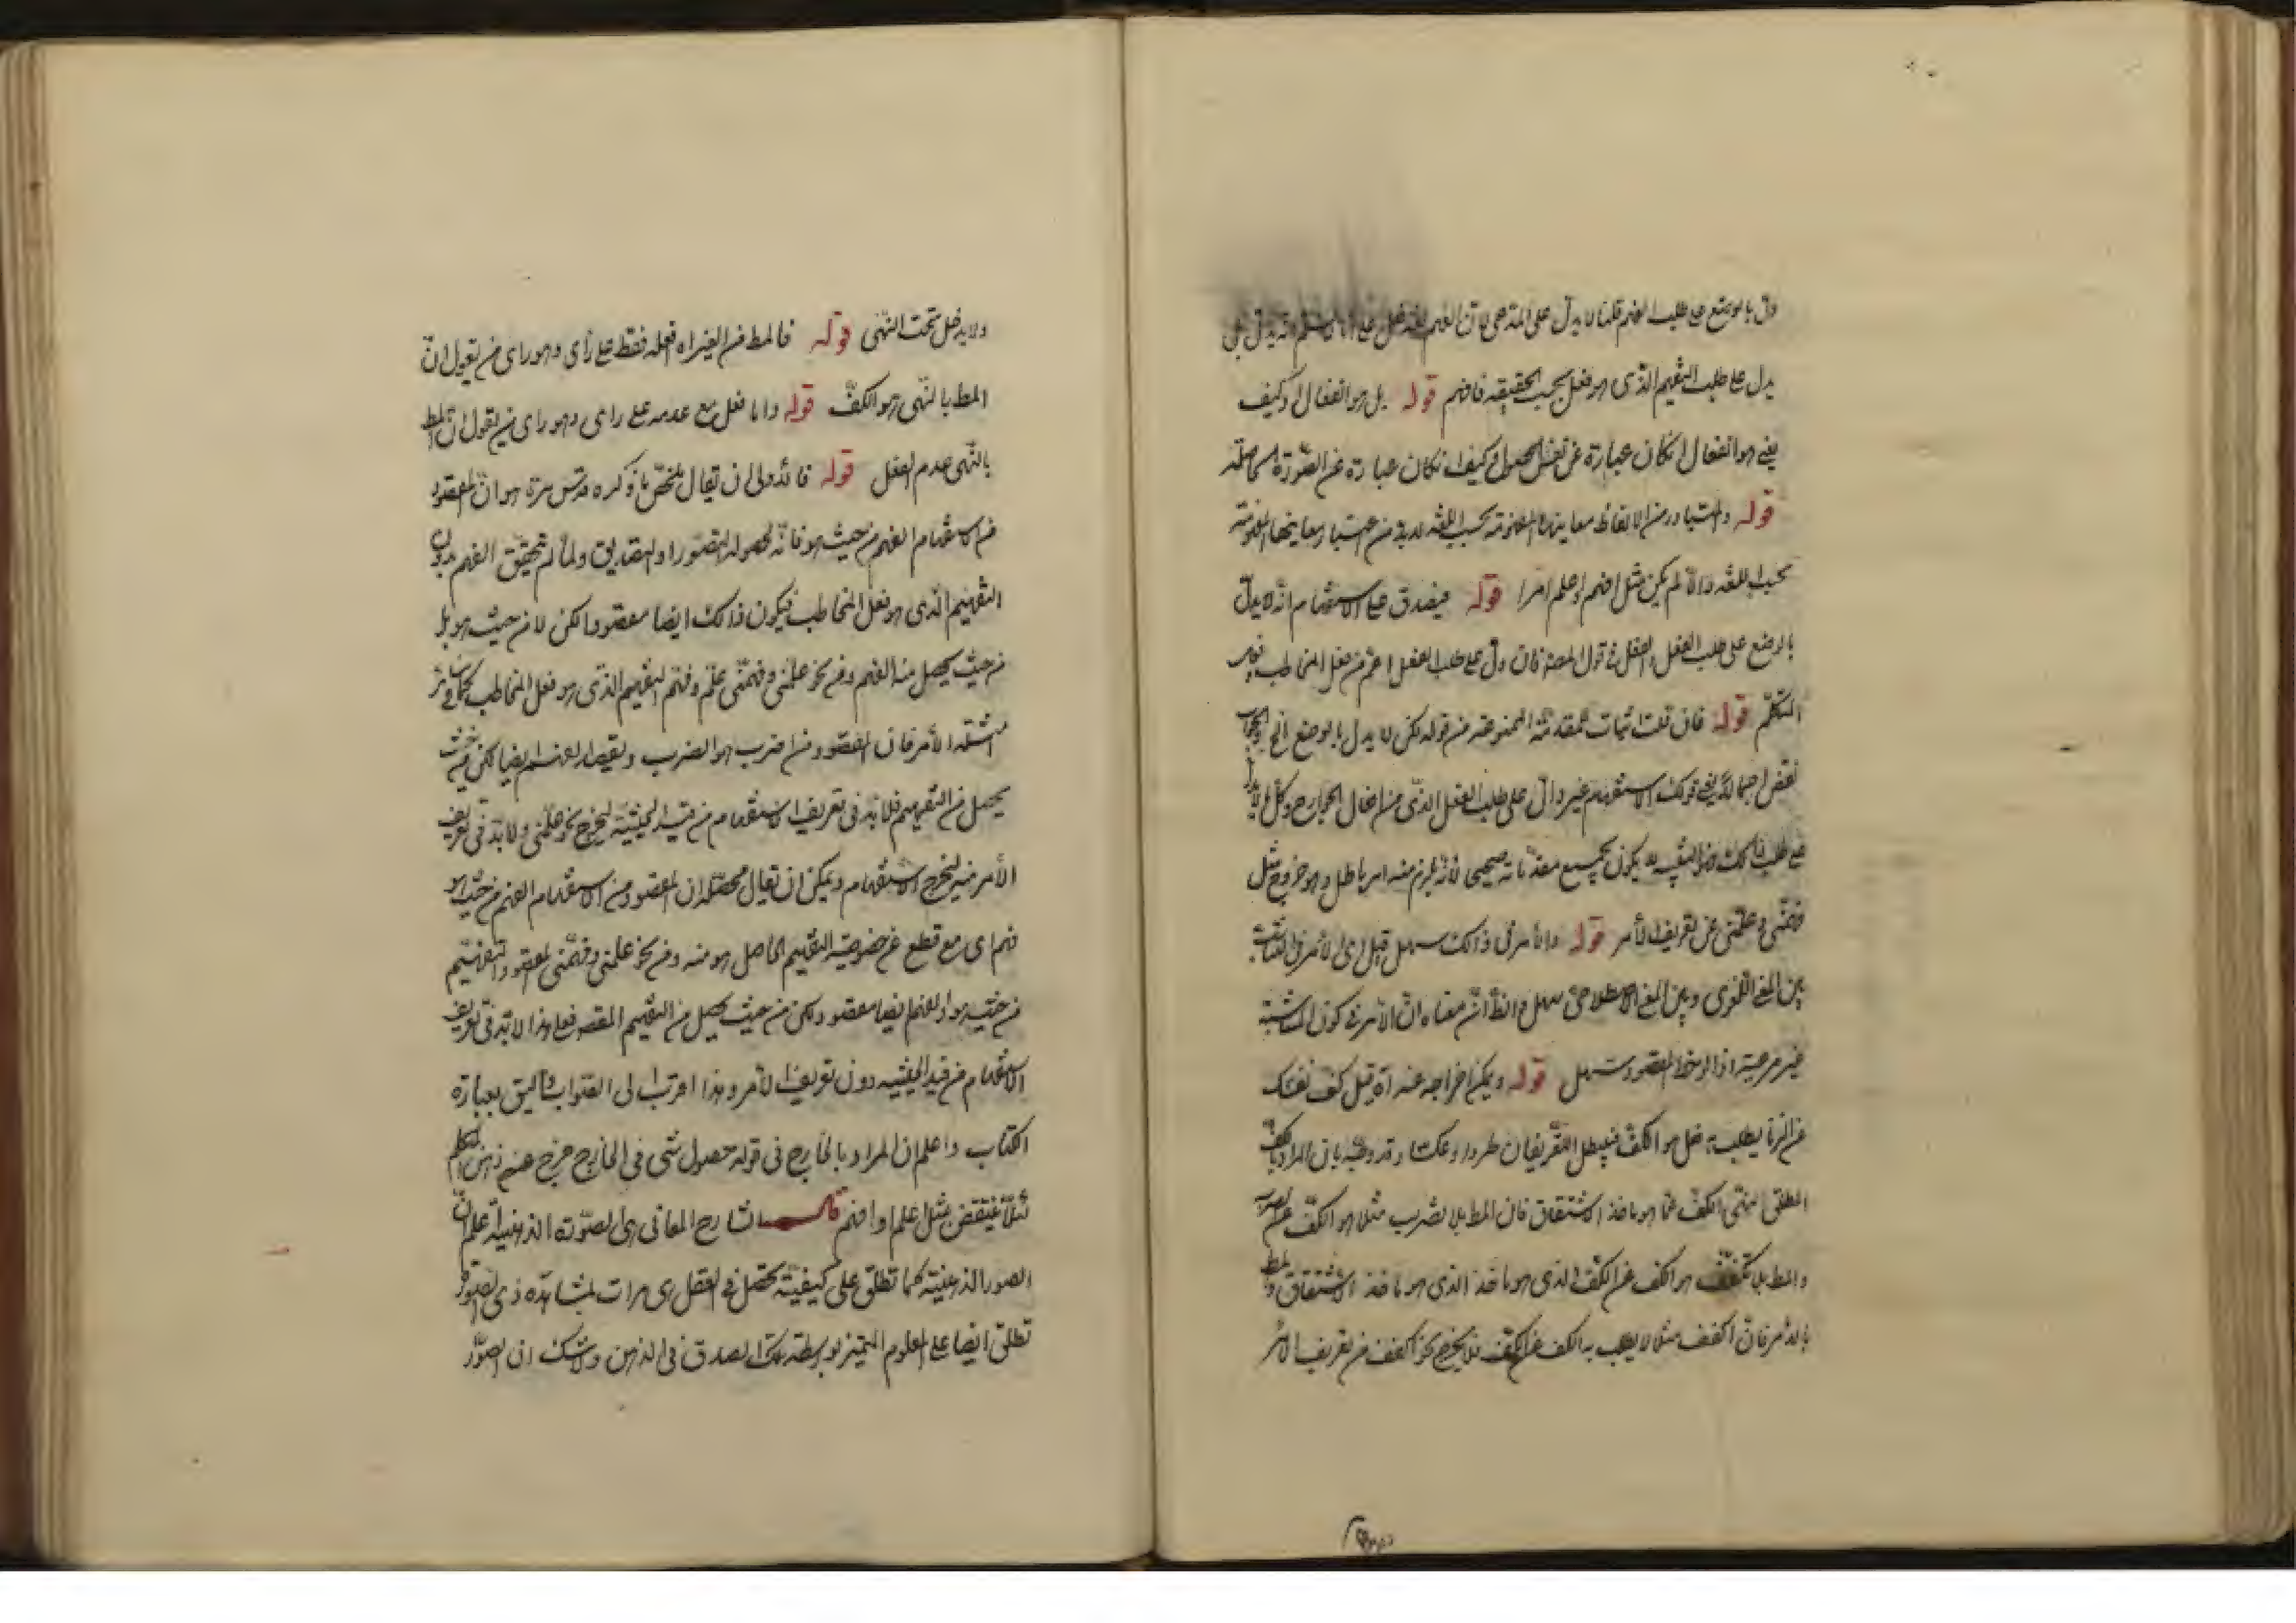 دل بالوضع على طلب الفهم قلنا لا يدل على المدعى لان الفهم
يدل على طلب التفهيم الذى هو فعل بحسب الحقيقة فافهم قوله بل هو انفعال او كيف
يعنى هو انفعال ان كان عبارة عن نفس الحصول او كيف ان كان عبارة عن الصورة الحاصلة
قوله والمتبادر من الالفاظ معانيها المفهومة بحسب اللغة لا بد من اعتبار معانيها المفهومة
بحسب اللغة والا لم يكن مثل افهم او اعلم امرا قوله فيصدق على الاستفهام انه لا يدل
بالوضع على طلب الفعل والفعل فى قول المصنف فان دل على طلب الفعل اعم من فعل المخاطب
المتكلم قوله فان قلت اثبات للمقدمة الممنوعة من قوله لكن لا يدل بالوضع الخ
نقض اجمالا يعنى قولك الاستفهام غير دال على طلب الفعل الذى من افعال الجوارح وكل
على طلب ذلك يكون بجميع مقدماته صحيحا لانه يلزم منه امر باطل وهو خروج مثل
فهمنى وعلمنى عن تعريف الامر قوله والامر فى ذلك سهل قيل اى الامر فى المناسبة
بين المعنى اللغوى وبين المعنى الاصطلاحى سهل والظ ان معناه ان الامر فى كون المناسبة
غير مرعية اذا لوحظ المقصود سهل قوله ويمكن اخراجه عنه اه قيل كف نفسك
عن الزنا يطلب به فعل هو الكف فيبطل التعريفان طردا وعكسا وقد وجه بان المراد بالكف
المطلق للنهى الكف عما هو ماخذ الاشتقاق فان المط بلا تضرب مثلا هو الكف عن الضرب
والمط بلا تكفف هو الكف عن الكف الذى هو ماخذ الذى هو ماخذ الاشتقاق والمط
بالامر فان اكفف مثلا لا يطلب به الكف عن الكف فلا يخرج نحو اكفف من تعريف الامر
ولا يدخل تحت النهى قوله فالمط من الغير اما فعله فقط على رأى وهو راى من يقول ان
المط بالنهى هو الكف قوله واما فعل مع عدمه على راى وهو راى من يقول ان المط
بالنهى عدم الفعل قوله فالاولى ان يقال ملخص ما ذكره قدس سره هو ان المقصود
من الاستفهام الفهم من حيث هو فانه لحصول التصور او التصديق ولما لم يتحقق الفهم بدون
التفهيم الذى هو فعل المخاطب فيكون ذلك ايضا مقصودا لكن لا من حيث هو بل
من حيث يحصل منه الفهم ومن نحو علمنى وفهمنى علم وفهم التفهيم الذى هو فعل المخاطب كما فى سائر
امثلة الامر فان المقصود من اضرب هو الضرب ويقصد الفهم ايضا لكن من حيث
يحصل من التفهيم فلا بد فى تعريف الاستفهام من قيد الحيثية ليخرج نحو علمنى ولا بد فى تعريف
الأمر منه ليخرج الاستفهام ويمكن ان يقال محصله ان المقصود من الاستفهام الفهم من حيث هو
فهم اى مع قطع عن خصوصية التفهيم الحاصل هو منه ومن نحو علمنى وفهمنى المقصود التفهيم
من حيث هو والفهم ايضا مقصود لكن من حيث يحصل من التفهيم المقصود فعلى هذا لا بد فى تعريف
الاستفهام من قيد الحيثية دون تعريف الامر وهذا اقرب الى الصواب واليق بعبارة
الكتاب واعلم ان المراد بالخارج فى قوله حصول شئ فى الخارج خرج عنه ذهن المتكلم
لئلا ينتقض بمثل اعلم او افهم قال الشارح المعانى هى الصورة الذهنية اعلم ان
الصور الذهنية كما تطلق على كيفية تحصل فى العقل هى مرات لمشاهدة ذى الصورة
تطلق ايضا على المعلوم المتميز بواسطة تلك الصورة فى الذهن ولا شك ان الصور